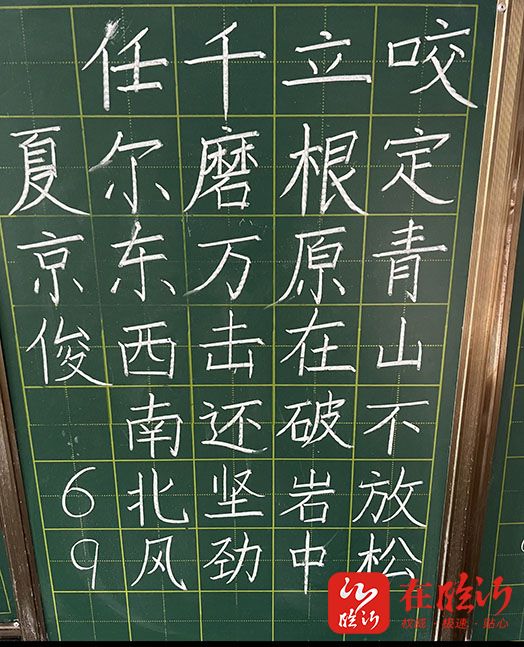 咬定青山不放松
立根原在破岩中
千磨万击还坚劲
任尔东西南北风
夏京俊
69
在临沂
权威·极速·贴心
在临沂